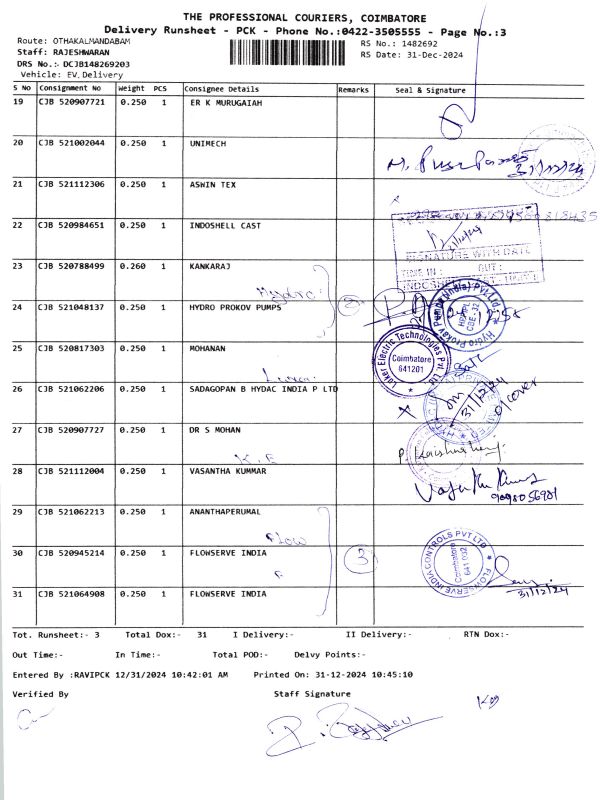 THE PROFESSIONAL COURIERS, COIMBATORE
Delivery Runsheet - PCK - Phone No.:0422-3505555 - Page No.:3
Route: OTHAKALMANDABAM
RS No.: 1482692
Staff: RAJESHWARAN
RS Date: 31-Dec-2024
DRS No.:- DCJB148269203
Vehicle: EV.Delivery
S No Consignment No Weight PCS Consignee Details Remarks Seal & Signature
19 CJB 520907721 0.250 1 ER K MURUGAIAH
20 CJB 521002044 0.250 1 UNIMECH
31/12/24
21 CJB 521112306 0.250 1 ASWIN TEX
22 CJB 520984651 0.250 1 INDOSHELL CAST
SIGNATURE WITH DATE
TIME IN : OUT :
23 CJB 520788499 0.260 1 KANKARAJ
Hydro
24 CJB 521048137 0.250 1 HYDRO PROKOV PUMPS
Hydro Prokav Pumps (India) Pvt. Ltd
25 CJB 520817303 0.250 1 MOHANAN
Loker Electric Technologies Pvt. Ltd
Coimbatore
641201
26 CJB 521062206 0.250 1 SADAGOPAN B HYDAC INDIA P LTD
31/12/24
27 CJB 520907727 0.250 1 DR S MOHAN
K.E
28 CJB 521112004 0.250 1 VASANTHA KUMMAR
29 CJB 521062213 0.250 1 ANANTHAPERUMAL
Flow
30 CJB 520945214 0.250 1 FLOWSERVE INDIA
3
FLOWSERVE INDIA CONTROLS PVT LTD
Coimbatore
641 032
F
31 CJB 521064908 0.250 1 FLOWSERVE INDIA
31/12/24
Tot. Runsheet:- 3 Total Dox:- 31 I Delivery:- II Delivery:- RTN Dox:-
Out Time:- In Time:- Total POD:- Delvy Points:-
Entered By :RAVIPCK 12/31/2024 10:42:01 AM Printed On: 31-12-2024 10:45:10
Verified By Staff Signature